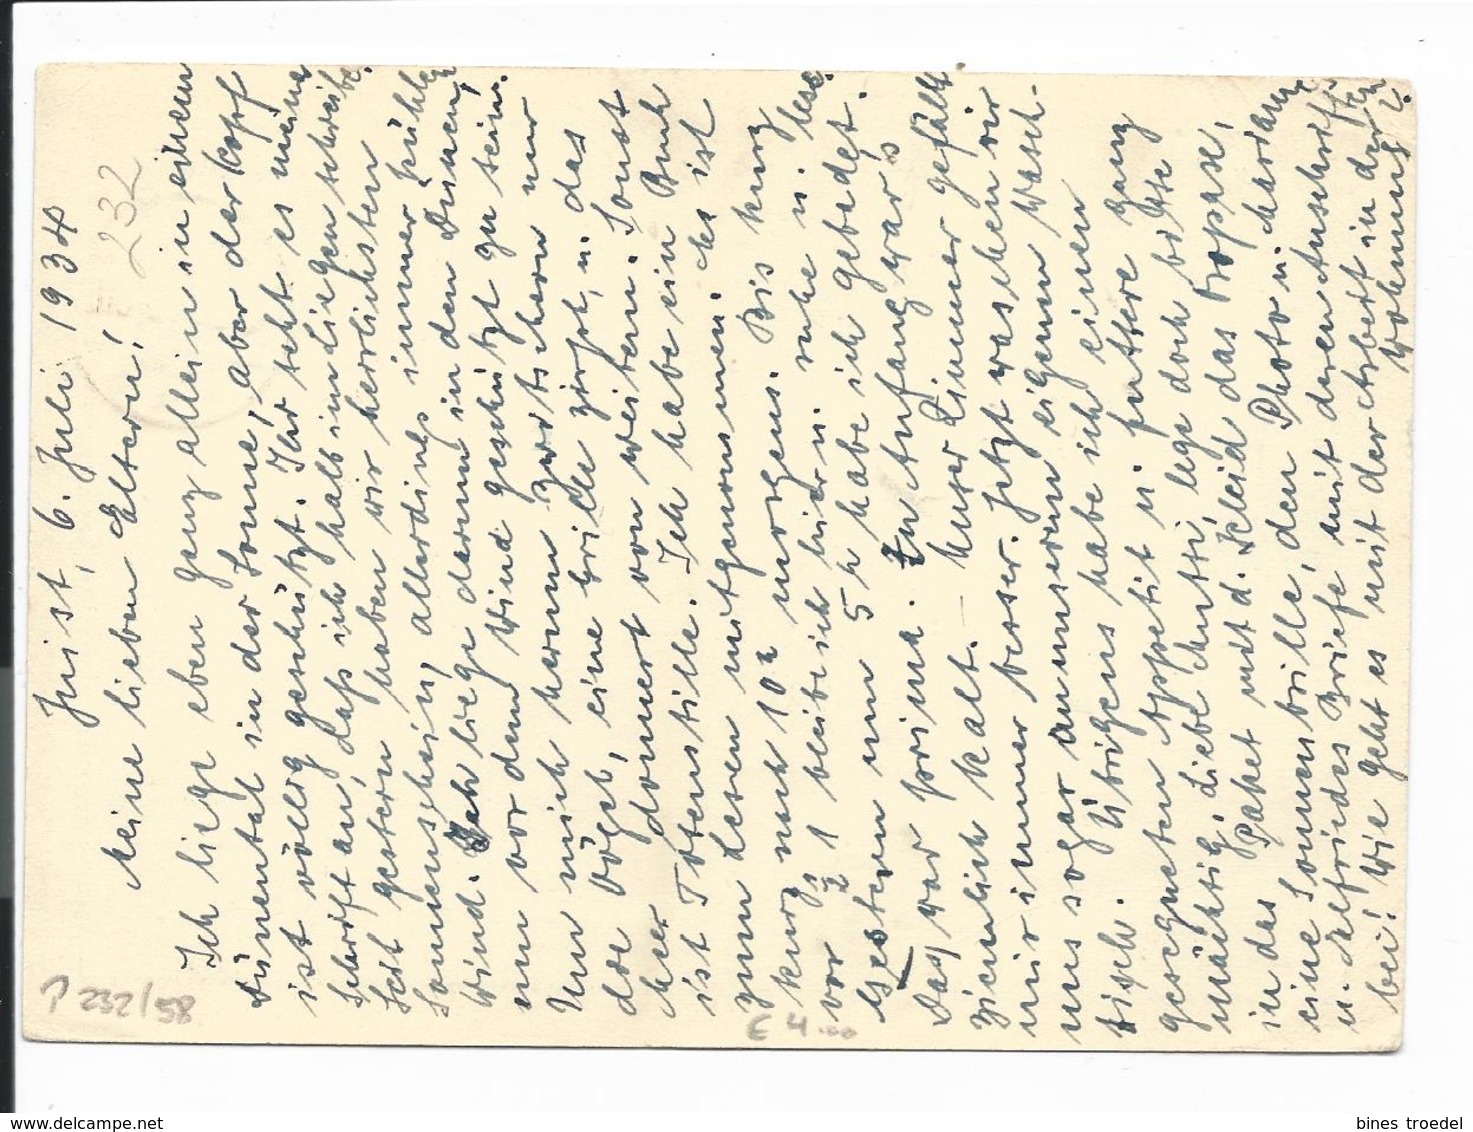 Juist, 6. Juli 1934
Meine lieben Eltern!
Ich liege eben ganz allein in einem
Dünental in der Sonne, aber der Kopf
ist völlig geschützt. Ihr seht es meiner
Schrift an, daß ich halb im Liegen schreibe.
Seit gestern haben wir herrlichsten
Sonnenschein, allerdings immer kühlen
Wind. Ich liege darum in den Dünen,
um vor dem Wind geschützt zu sein.
Um mich herum zwitschern nur
die Vögel, eine Grille zirpt, u. das
Meer donnert von weitem. Sonst
ist Totenstille. Ich habe ein Buch
zum Lesen mitgenommen. es ist
kurz nach 10 h morgens. Bis kurz
vor ½ 1 bleibe ich hier u. ruhe u. lese.
Gestern um 5 h habe ich gebadet.
Das war prima. Im Anfang war's
ziemlich kalt. – Unser Zimmer gefällt
mir immer besser. Jetzt waschen wir
uns sogar an unserem eigenen Wasch-
tisch. Übrigens habe ich einen
gesegneten Appetit u. futtere ganz
mächtig. Liebe Mutti, lege doch bitte
in das Paket mit d. Kleid das
eine Sonnenbrille, den Photo u. Mariannes
u. Elfriedes Briefe mit deren Anschriften
bei! Wie geht es mit der Arbeit in der
Wohnung?
232
P 232/58
€ 4.00
bines troedel